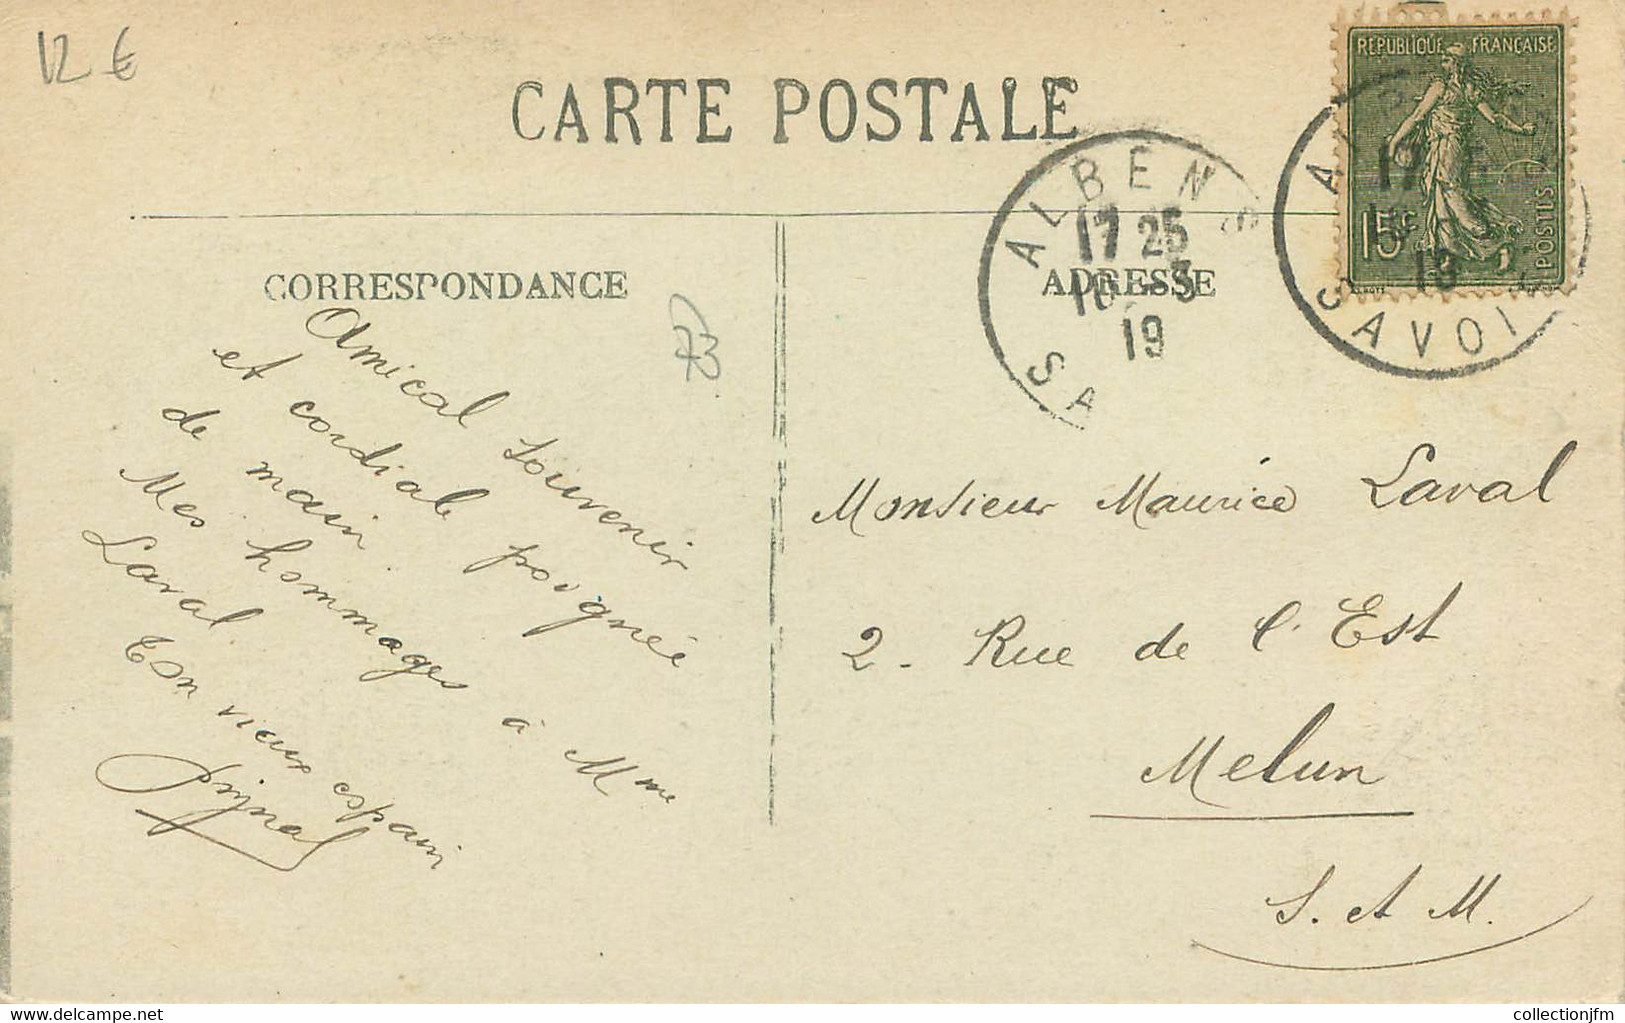 12 €
CARTE POSTALE
RÉPUBLIQUE FRANÇAISE
15c
POSTES
ALBENS
17 25
16 -3
19
SA
A
17
19
SAVOI
CORRESPONDANCE
ADRESSE
73
Amical Souvenir
et cordiale poignée
de main.
Mes hommages à Mme
Laval.
Ton vieux copain
Monsieur Maurice Laval
2 - Rue de l'Est
Melun
S. et M.
delcampe.net
collectionjfm